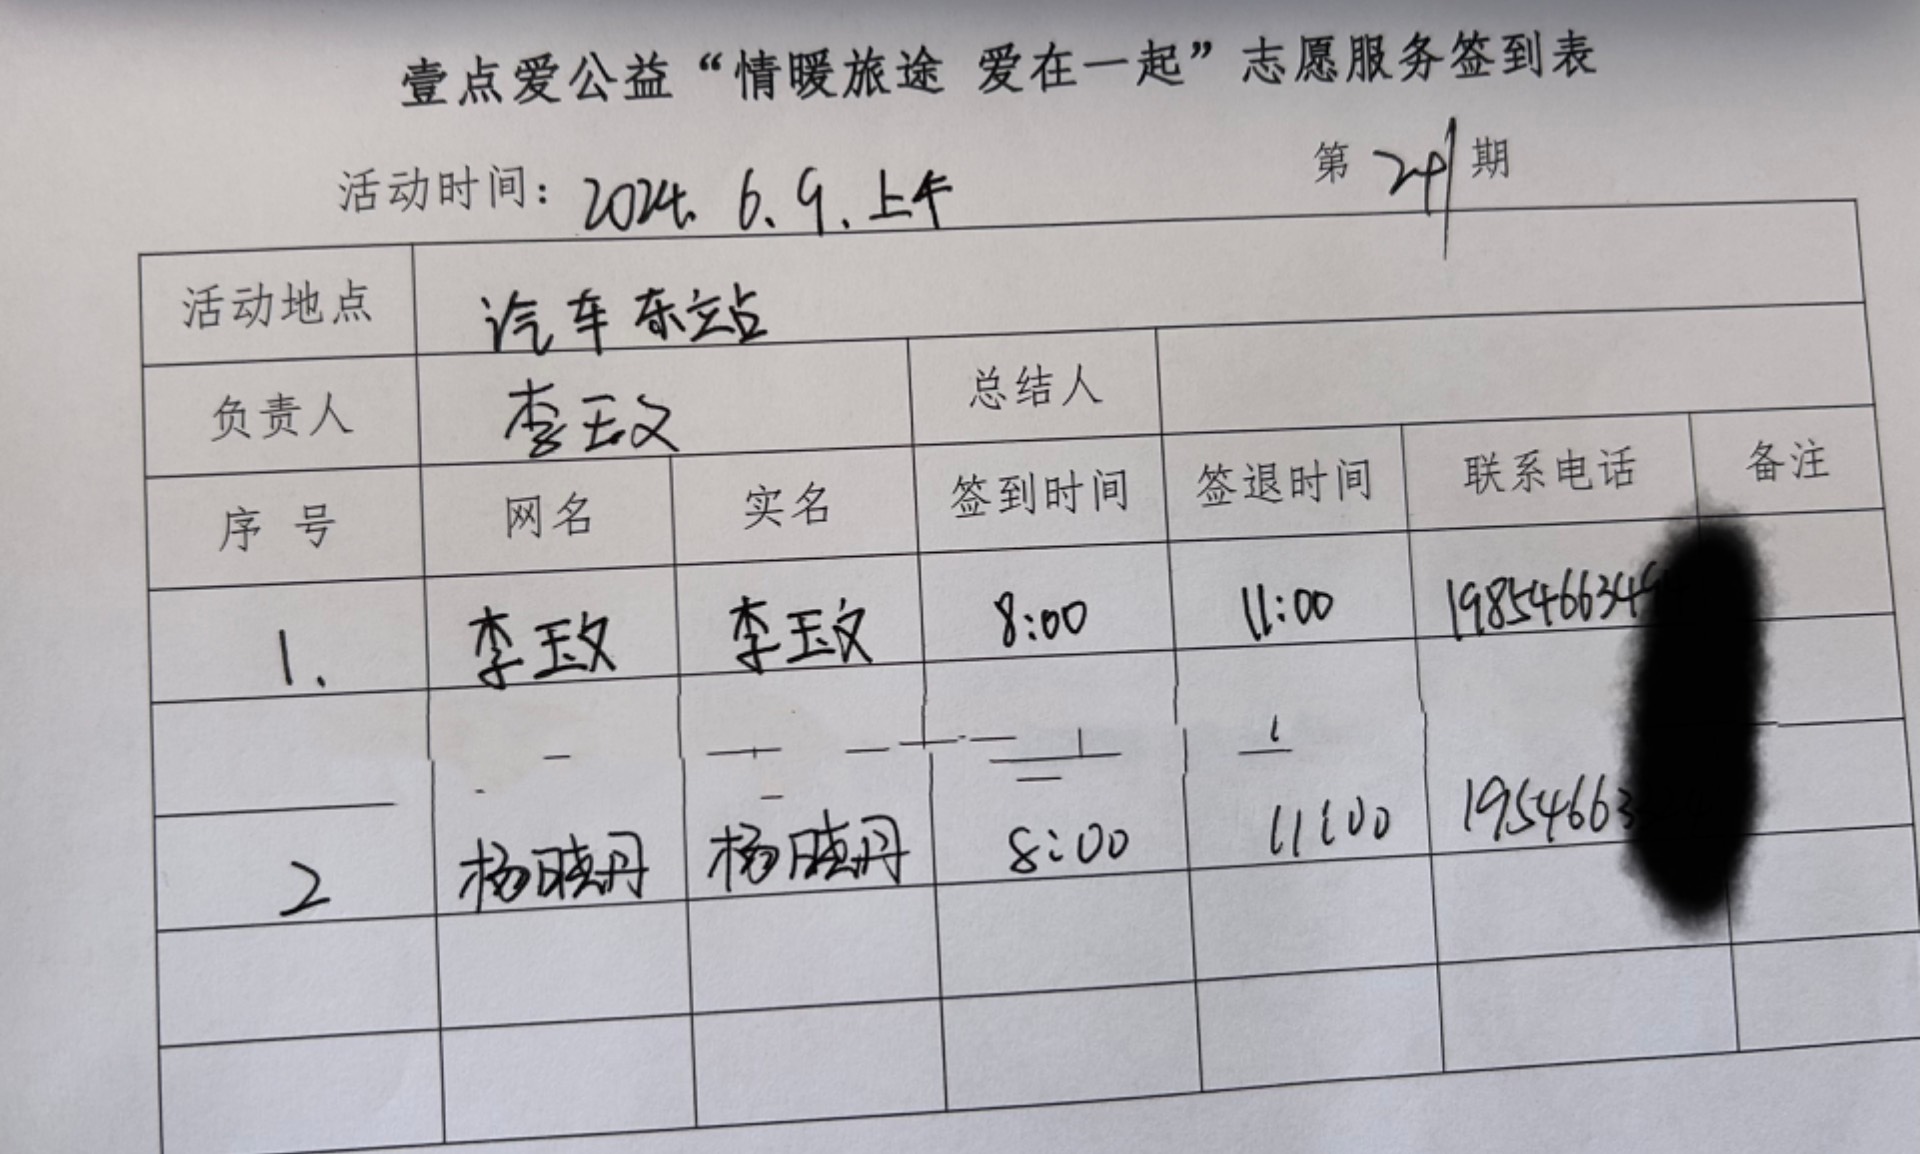 壹点爱公益“情暖旅途 爱在一起”志愿服务签到表
活动时间：2024.6.9.上午 第241期
活动地点 汽车东站
负责人 李玉文 总结人
序号 网名 实名 签到时间 签退时间 联系电话 备注
1. 李玉文 李玉文 8:00 11:00 198546634
2 杨晓丹 杨晓丹 8:00 11:00 1954663